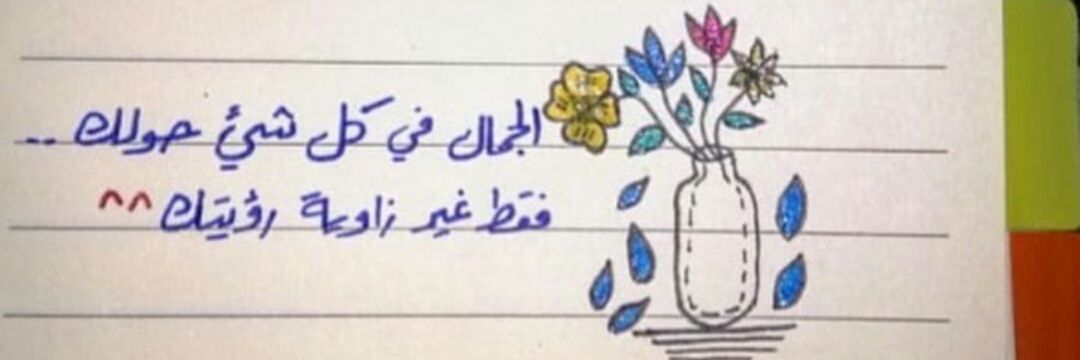 الجمال في كل شيئ حولك ..
فقط غير زاوية رؤيتك ^^